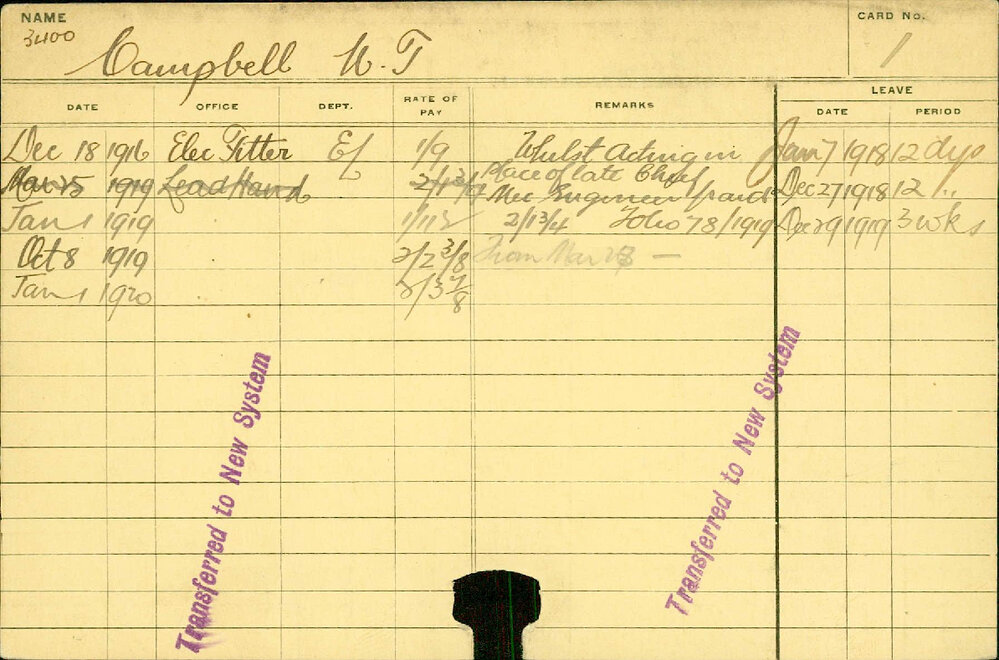 NAME
CARD No.
3400
Campbell W. T
1
LEAVE
DATE OFFICE DEPT. RATE OF PAY REMARKS DATE PERIOD
Dec 18 1916 Elec Fitter EL 1/9 Whilst Acting in Jany 7 1918 12 dys
Mar 25 1919 Lead Hand Place of late Chief
Mec Engineer paid Dec 27 1918 12 "
Jan 1 1919 2/1 3/4 Folio 78/1919 Dec 29 1919 3 wks
Oct 8 1919 2/2 3/8 From Mar
Jan 1 1920 2/3 7/8
Transferred to New System
Transferred to New System